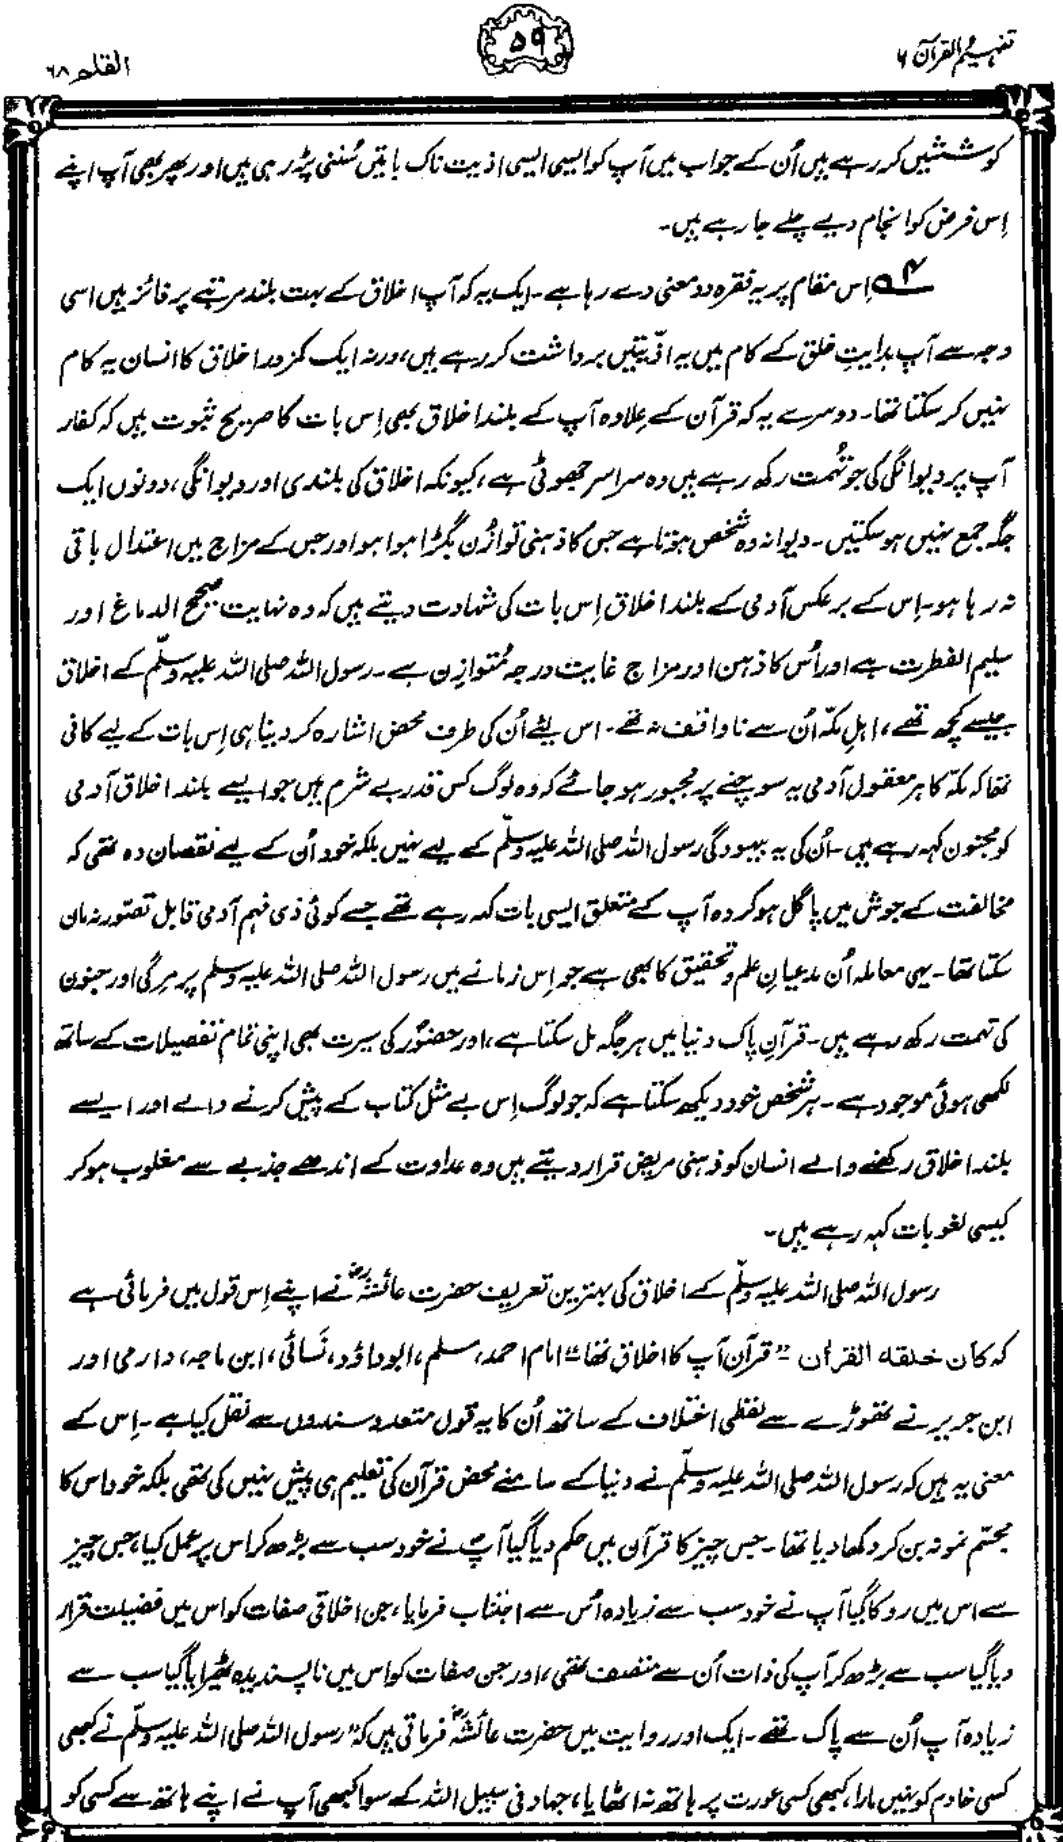 تفہیم القرآن ۶
۵۹
القلم ۶۸
کوششیں کر رہے ہیں اُن کے جواب میں آپ کو ایسی ایسی اذیت ناک باتیں سُننی پڑ رہی ہیں اور پھر بھی آپ اپنے
اِس فرض کو انجام دیے چلے جا رہے ہیں۔
۴؎ اِس مقام پر یہ فقرہ دو معنی دے رہا ہے۔ ایک یہ کہ آپ اخلاق کے بہت بلند مرتبے پر فائز ہیں اسی
وجہ سے آپ ہدایتِ خلق کے کام میں یہ اذّیتیں برداشت کر رہے ہیں، ورنہ ایک کمزور اخلاق کا انسان یہ کام
نہیں کر سکتا تھا۔ دوسرے یہ کہ قرآن کے عِلاوہ آپ کے بلند اخلاق بھی اِس بات کا صریح ثبوت ہیں کہ کفار
آپ پر دیوانگی کی جو تُہمت رکھ رہے ہیں وہ سراسر جھوٹی ہے، کیونکہ اخلاق کی بلندی اور دیوانگی، دونوں ایک
جگہ جمع نہیں ہو سکتیں۔ دیوانہ وہ شخص ہوتا ہے جس کا ذہنی توازُن بگڑا ہوا ہو اور جس کے مزاج میں اعتدال باقی
نہ رہا ہو۔ اِس کے برعکس آدمی کے بلند اخلاق اِس بات کی شہادت دیتے ہیں کہ وہ نہایت صحیح الدماغ اور
سلیم الفطرت ہے اور اُس کا ذہن اور مزاج غایت درجہ مُتوازِن ہے۔ رسول اللہ صلی اللہ علیہ وسلّم کے اخلاق
جیسے کچھ تھے، اہلِ مکّہ اُن سے ناواقف نہ تھے۔ اس لیٔے اُن کی طرف محض اشارہ کر دینا ہی اِس بات کے لیے کافی
تھا کہ مکّہ کا ہر معقول آدمی یہ سوچنے پر مجبور ہو جائے کہ وہ لوگ کس قدر بے شرم ہیں جو ایسے بلند اخلاق آدمی
کو مجنون کہہ رہے ہیں۔ اُن کی یہ بیہودگی رسول اللہ صلی اللہ علیہ وسلّم کے لیے نہیں بلکہ خود اُن کے لیے نقصان دہ تھی کہ
مخالفت کے جوش میں پاگل ہو کر وہ آپ کے متعلق ایسی بات کہہ رہے تھے جسے کوئی ذی فہم آدمی قابل تصوّر نہ مان
سکتا تھا۔ یہی معاملہ اُن مدعیانِ علم و تحقیق کا بھی ہے جو اِس زمانے میں رسول اللہ صلی اللہ علیہ وسلم پر مرگی اور جنون
کی تہمت رکھ رہے ہیں۔ قرآنِ پاک دنیا میں ہر جگہ مل سکتا ہے، اور حضوؐر کی سیرت بھی اپنی تمام تفصیلات کے ساتھ
لکھی ہوئی موجود ہے۔ ہر شخص خود دیکھ سکتا ہے کہ جو لوگ اِس بے مثل کتاب کے پیش کرنے والے اور ایسے
بلند اخلاق رکھنے والے انسان کو ذہنی مریض قرار دیتے ہیں وہ عداوت کے اندھے جذبے سے مغلوب ہو کر
کیسی لغو بات کہہ رہے ہیں۔
رسول اللہ صلی اللہ علیہ وسلّم کے اخلاق کی بہترین تعریف حضرت عائشہؓ نے اپنے اِس قول میں فرمائی ہے
کہ کان خلقہ القراٰن ”قرآن آپ کا اخلاق تھا“ امام احمد، مسلم، ابوداؤد، نَسائی، ابن ماجہ، دارمی اور
ابن جریر نے تھوڑے سے لفظی اختلاف کے ساتھ اُن کا یہ قول متعدد سندوں سے نقل کیا ہے۔ اِس کے
معنی یہ ہیں کہ رسول اللہ صلی اللہ علیہ وسلّم نے دنیا کے سامنے محض قرآن کی تعلیم ہی پیش نہیں کی تھی بلکہ خود اس کا
مجسّم نمونہ بن کر دکھا دیا تھا۔ جس چیز کا قرآن میں حکم دیا گیا آپؐ نے خود سب سے بڑھ کر اس پر عمل کیا، جس چیز
سے اس میں روکا گیا آپ نے خود سب سے زیادہ اُس سے اجتناب فرمایا، جن اخلاقی صفات کو اس میں فضیلت قرار
دیا گیا سب سے بڑھ کر آپ کی ذات اُن سے متصف تھی، اور جن صفات کو اس میں ناپسندیدہ ٹھیرایا گیا سب سے
زیادہ آپ اُن سے پاک تھے۔ ایک اور روایت میں حضرت عائشہؓ فرماتی ہیں کہ ”رسول اللہ صلی اللہ علیہ وسلّم نے کبھی
کسی خادم کو نہیں مارا، کبھی کسی عورت پر ہاتھ نہ اٹھایا، جہاد فی سبیل اللہ کے سوا کبھی آپ نے اپنے ہاتھ سے کسی کو